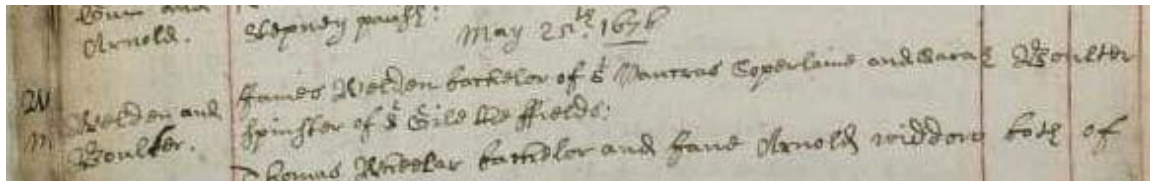 and
Arnold.
Stepney parish:
May 25th: 1676
W
m
Welden and
Boulter.
James Welden batchelor of St Pancras Soperlaine and Sarah Boulter
spinster of St Giles the ffields:
Thomas batchelor and Jane Arnold widdow both of